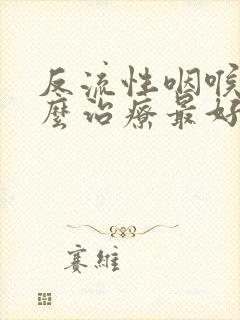 反流性咽喉
麼治療最好
賽維